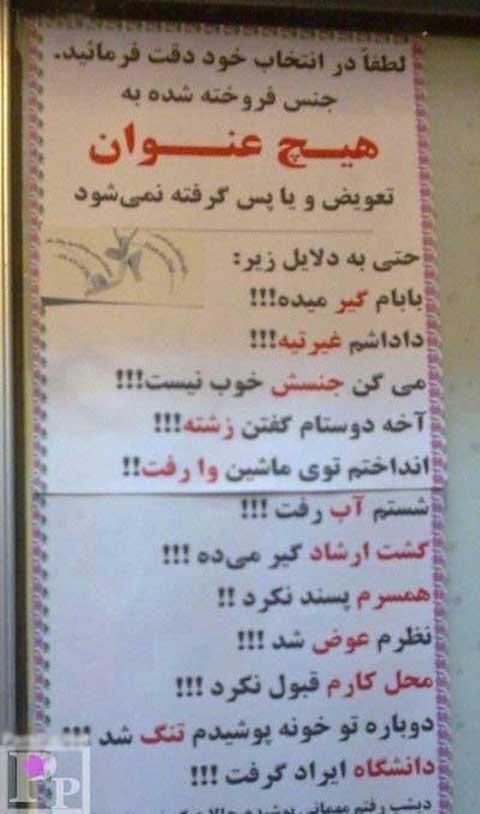 لطفاً در انتخاب خود دقت فرمائید.
جنس فروخته شده به
هیچ عنوان
تعویض و یا پس گرفته نمی‌شود
حتی به دلایل زیر:
بابام گیر میده!!!
داداشم غیرتیه!!!
می گن جنسش خوب نیست!!!
آخه دوستام گفتن زشته!!!
انداختم توی ماشین وا رفت!!
شستم آب رفت !!!
گشت ارشاد گیر می‌ده !!!
همسرم پسند نکرد !!
نظرم عوض شد !!!
محل کارم قبول نکرد !!!
دوباره تو خونه پوشیدم تنگ شد !!!
دانشگاه ایراد گرفت !!!
دیشب رفتم مهمانی پوشیدم
PP